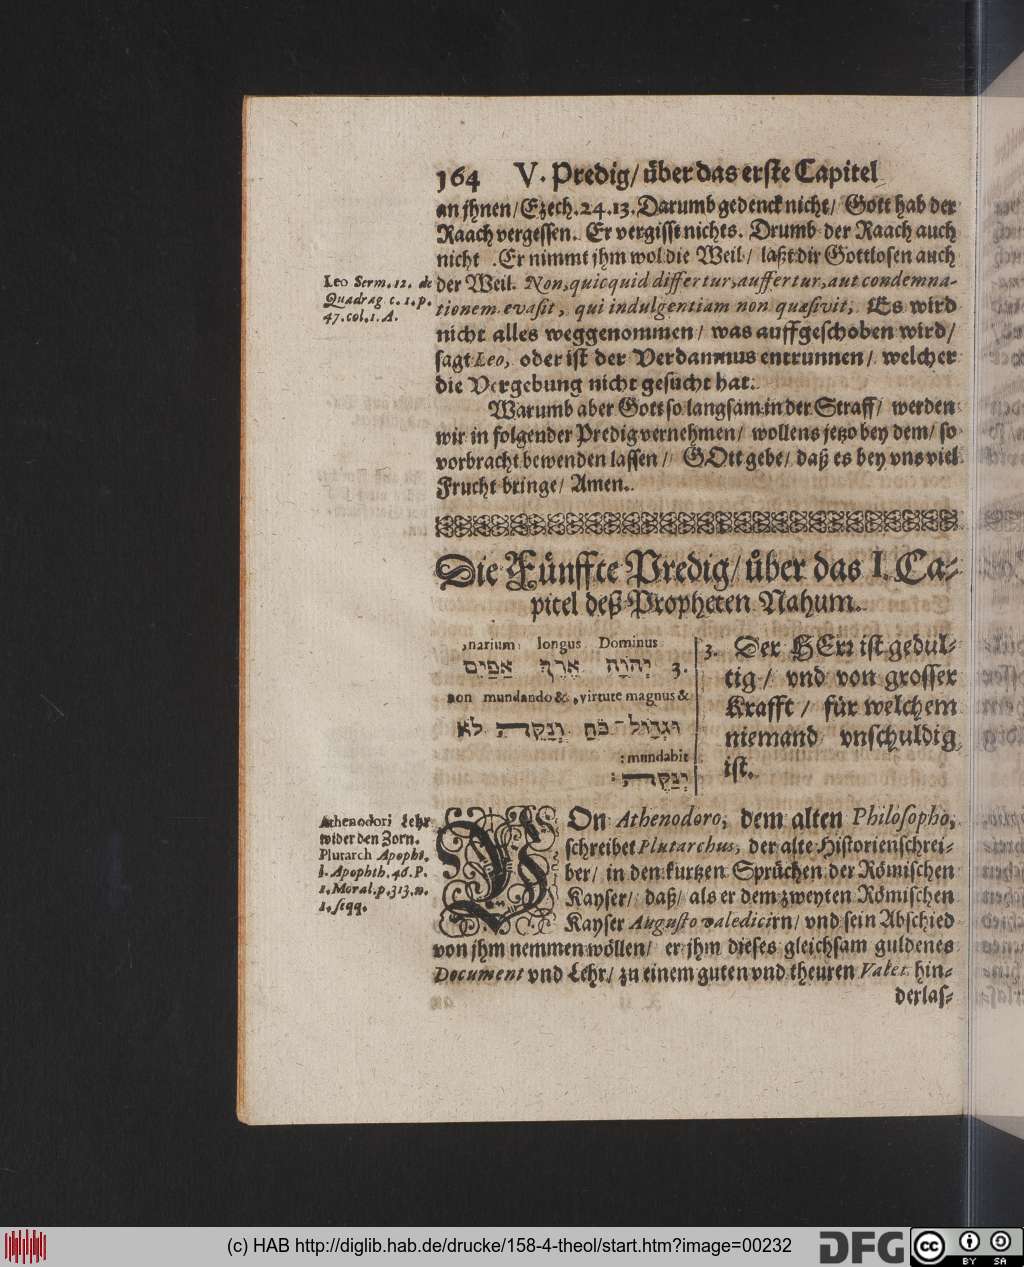 164 V. Predig/ über das erste Capitel
an jhnen/ Ezech. 24. 13. Darumb gedenck nicht/ Gott hab der
Raach vergessen. Er vergisst nichts. Drumb der Raach auch
nicht. Er nimmt jhm wol die Weil/ laßt dir Gottlosen auch
der Weil. Non, quicquid differtur, auffertur, aut condemna-
tionem evasit, qui indulgentiam non quæsivit, Es wird
nicht alles weggenommen/ was auffgeschoben wird/
sagt Leo, oder ist der Verdamnus entrunnen/ welcher
die Vergebung nicht gesucht hat.
Leo Serm. 12. de
Quadrag c. 1. p.
47. col. 1. A.
Warumb aber Gott so langsam in der Straff/ werden
wir in folgender Predig vernehmen/ wollens jetzo bey dem/ so
vorbracht bewenden lassen/ GOtt gebe/ daß es bey vns viel
Frucht bringe/ Amen.
Die Fünffte Predig/ über das I. Ca-
pitel deß Propheten Nahum.
,narium longus Dominus
3. יְהֹוָה אֶרֶךְ אַפַּיִם
non mundando & ,virtute magnus &
וּגְדָול־כֹּחַ וְנַקֵּה לֹא
: mundabit
יְנַקֶּה׃
3. Der HErr ist gedul-
tig/ vnd von grosser
Krafft/ für welchem
niemand vnschuldig
ist.
Athenodori Lehr
wider den Zorn.
Plutarch Apophs.
l. Apophth. 46. P.
1. Moral. p. 313. n.
1. seqq.
VOn Athenodoro, dem alten Philosopho,
schreibet Plutarchus, der alte Historienschrei-
ber/ in den kurtzen Sprüchen der Römischen
Kayser/ daß/ als er dem zweyten Römischen
Kayser Augusto valedicirn/ vnd sein Abschied
von jhm nemmen wöllen/ er jhm dieses gleichsam guldenes
Document vnd Lehr/ zu einem guten vnd theuren Valet hin-
derlas-
(c) HAB http://diglib.hab.de/drucke/158-4-theol/start.htm?image=00232
DFG
cc BY SA